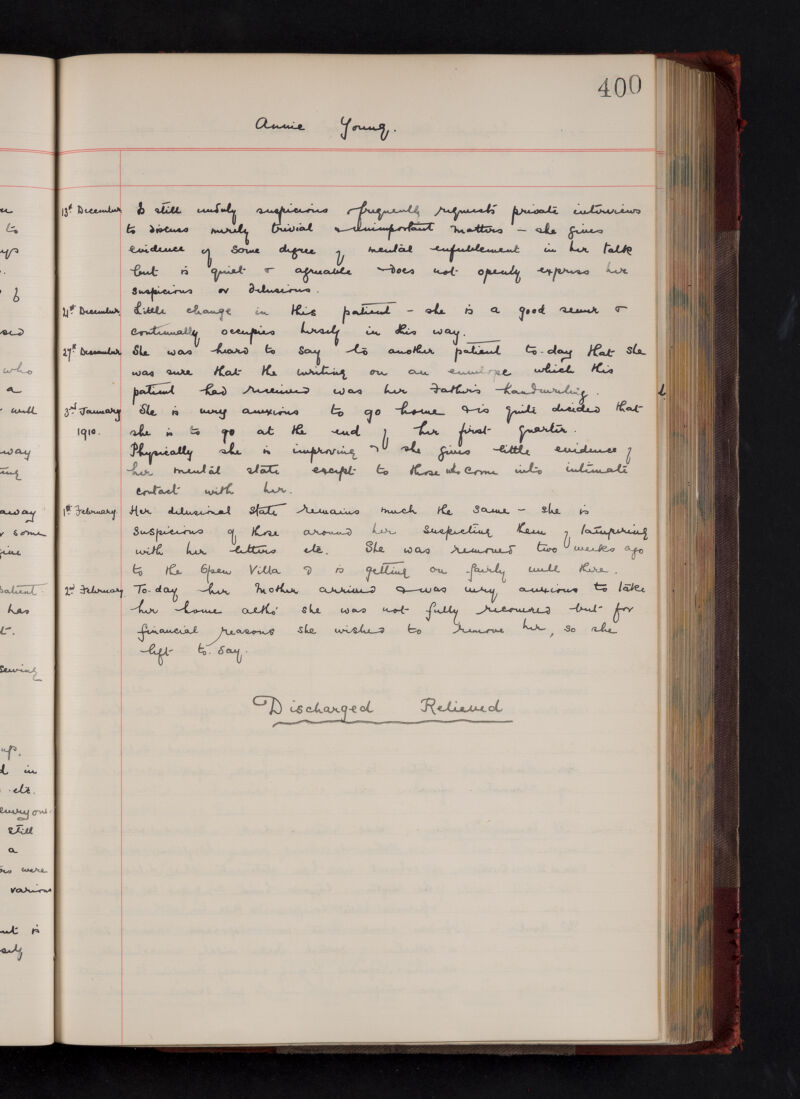 400
Annie Young.
13th December Is still unduly suspicious & frequently requests private interviews
to discuss merely trivial & unimportant matters – she gives
evidence of some degree of mental enfeeblement in her talk
but is quiet & agreeable & does not openly express her
suspicions or delusions.
21st December Little change in this patient – she is a good sewer &
continually occupies herself in this way.
27th December She was heard to say to another patient to-day that she
was sure that the writing on an envelope which this
patient had received was her Father's handwriting.
3rd January She is very anxious to go home & is quite decided that
1910. she is to go at the end of her first quarter.
Physically she is improving & she gives little evidence of
her mental state except to those who come into intimate
contact with her.
1st February Her delusional state remains much the same – she is
suspicious of those around her suspecting them of tampering
with her letters etc. She was removed two weeks ago
to the Open Villa & is getting on fairly well there.
2nd February To-day her Mother arrived & was very anxious to take
her home altho' she was not fully recovered but for
financial reasons she wished to remove her, so she
left to-day.
Discharged Relieved
to
who
a
well
way
away
some
patient
has
sewing
up.
in
etc.
everyone
still
a
were
various
is